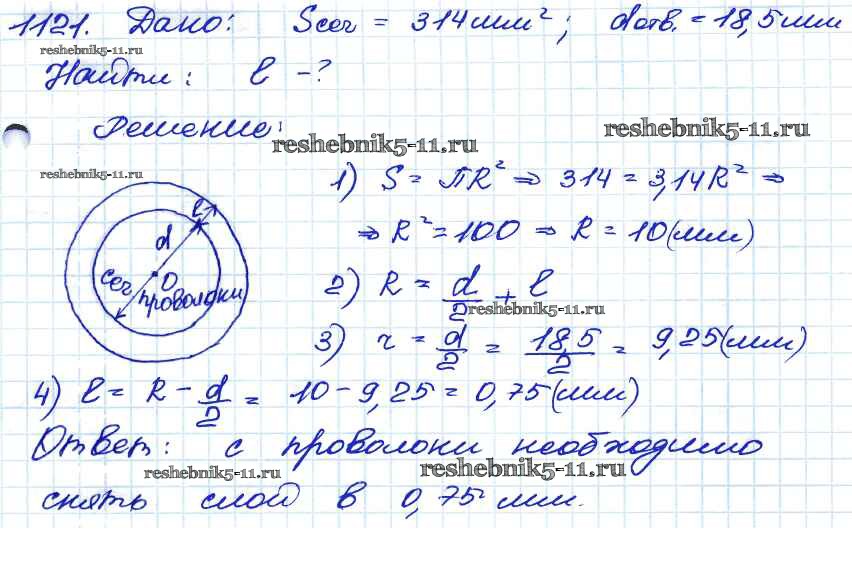 1121. Дано: Sсеч = 314 мм²; dотв. = 18,5 мм
reshebnik5-11.ru
Найти: ℓ - ?
Решение:
reshebnik5-11.ru
reshebnik5-11.ru
reshebnik5-11.ru
1) S = πR² ⇒ 314 = 3,14R² ⇒
⇒ R² = 100 ⇒ R = 10 (мм)
ℓ
d
O
сеч проволоки
2) R = d/2 + ℓ
reshebnik5-11.ru
3) r = d/2 = 18,5/2 = 9,25 (мм)
4) ℓ = R - d/2 = 10 - 9,25 = 0,75 (мм)
Ответ: с проволоки необходимо
reshebnik5-11.ru
reshebnik5-11.ru
снять слой в 0,75 мм.